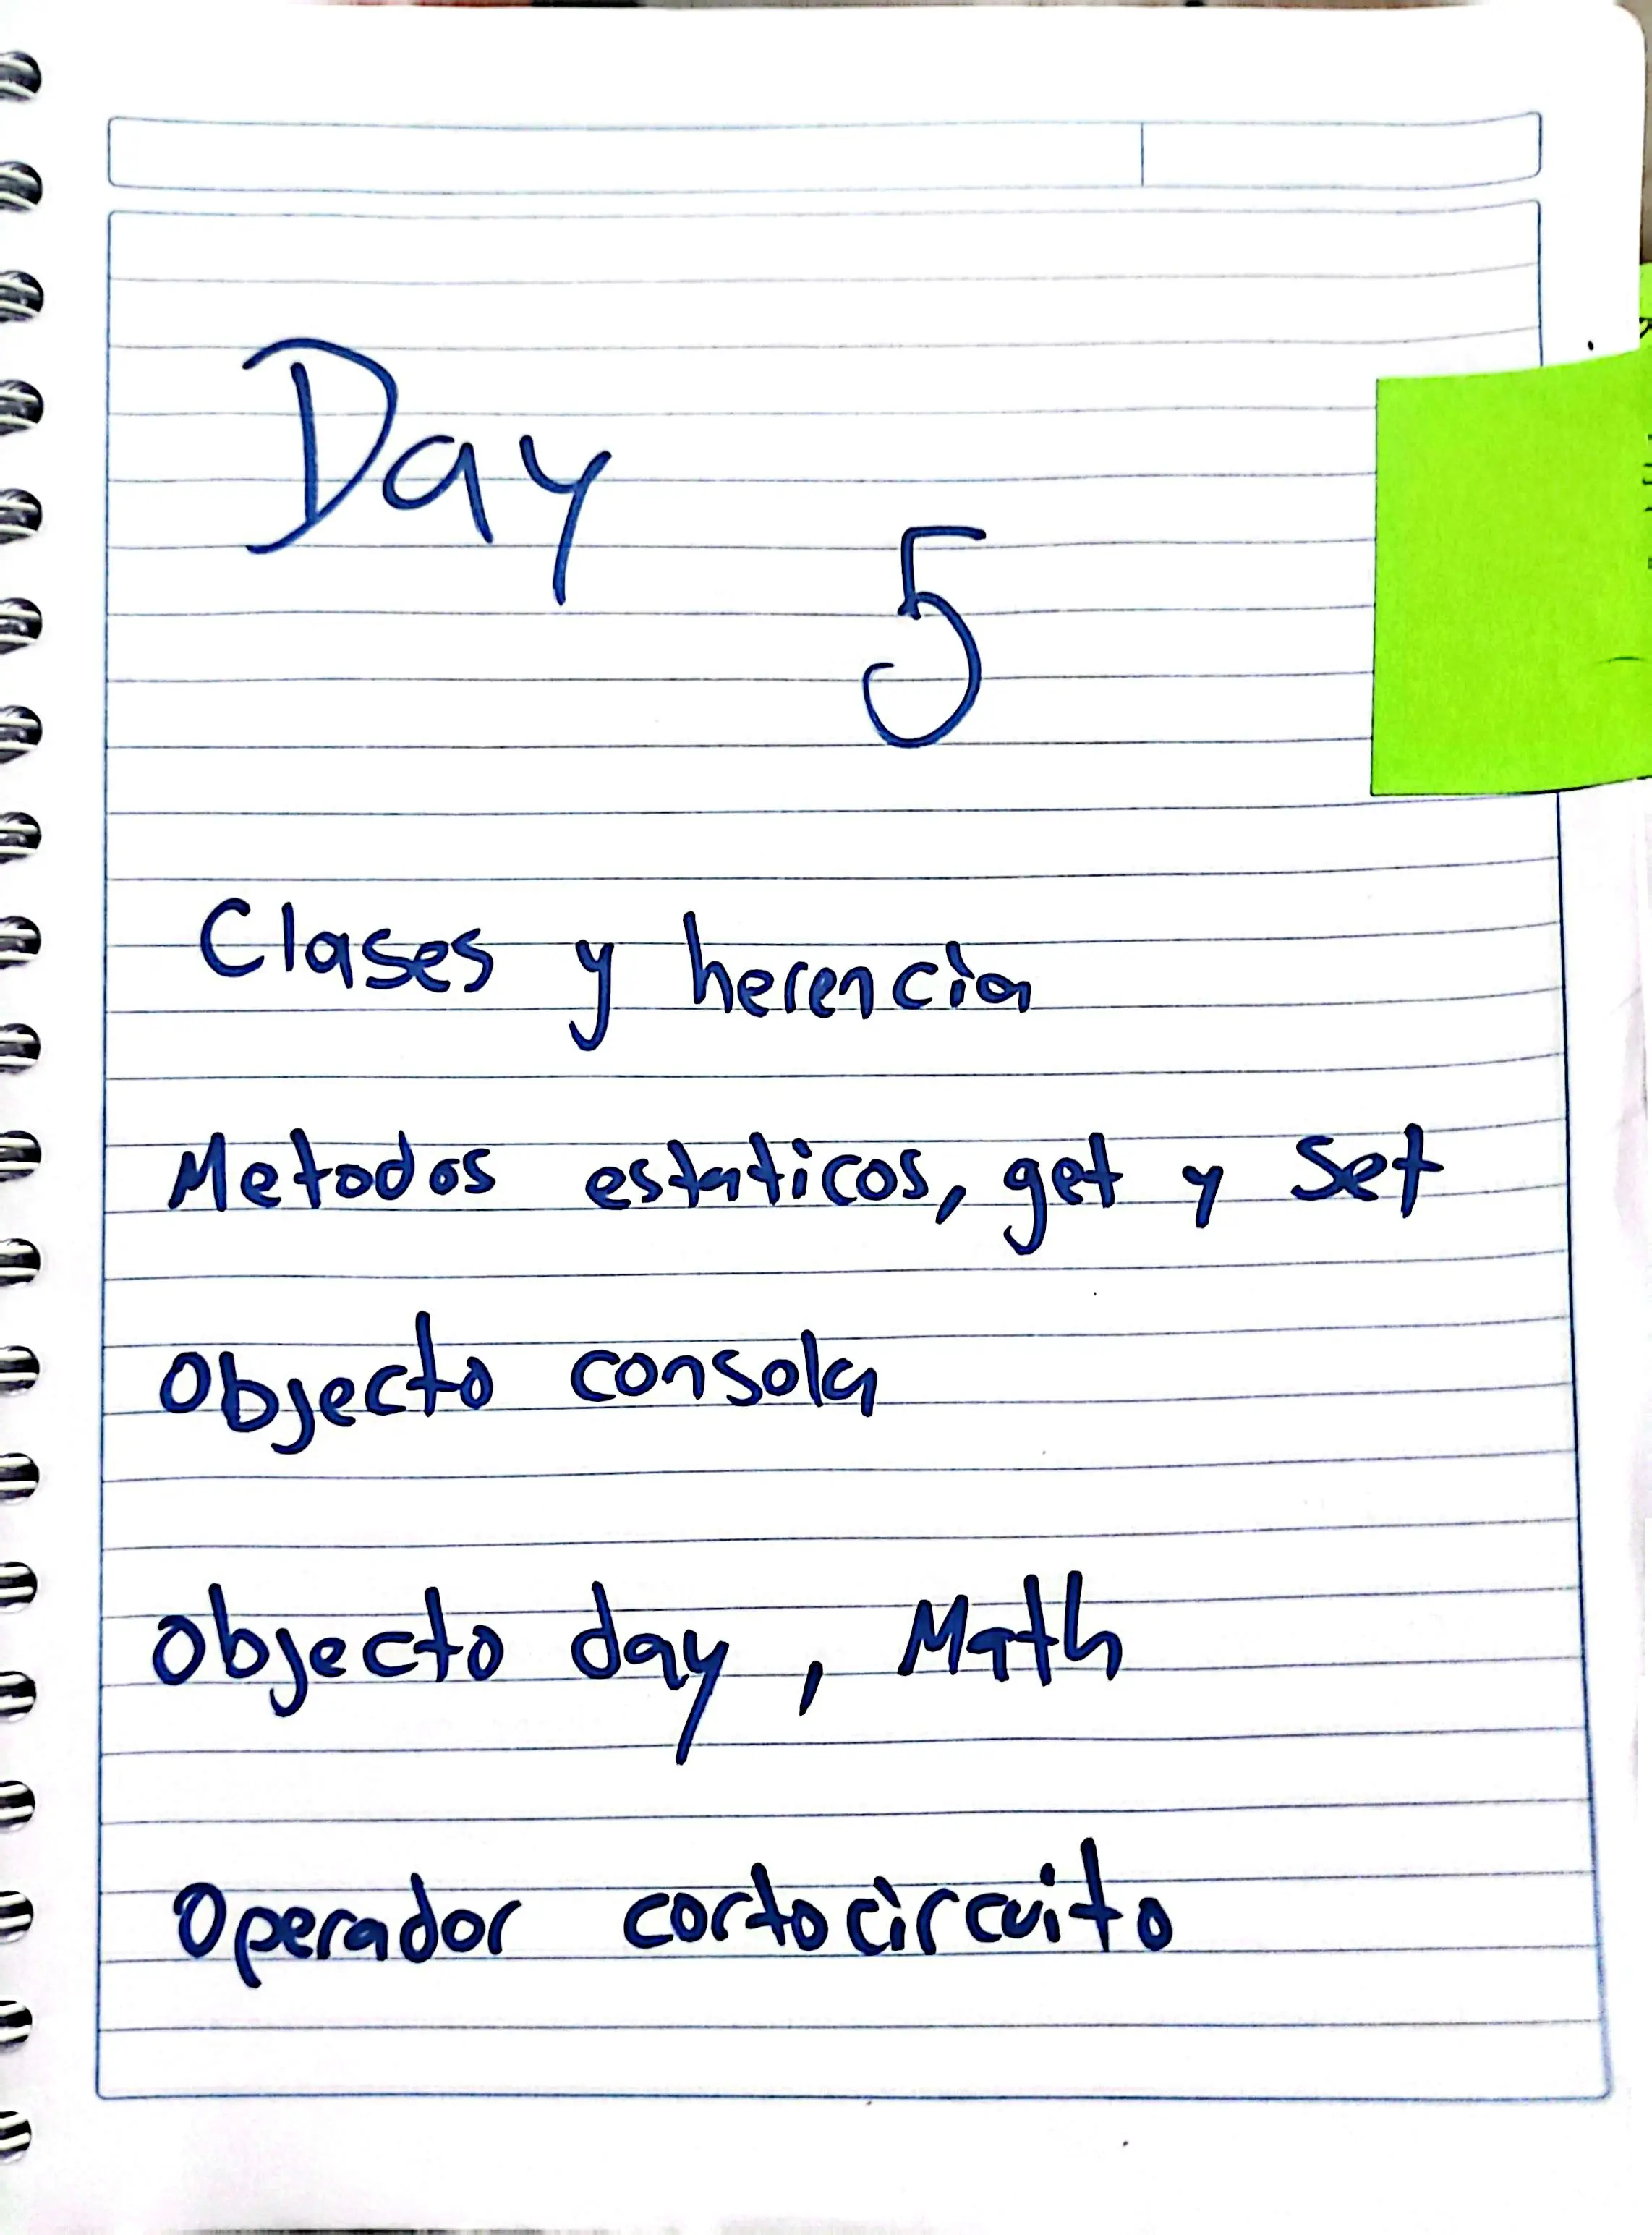 Day
5
Clases y herencia
Metodos estaticos, get y Set
Objecto consola
Objecto day, Math
Operador cortocircuito